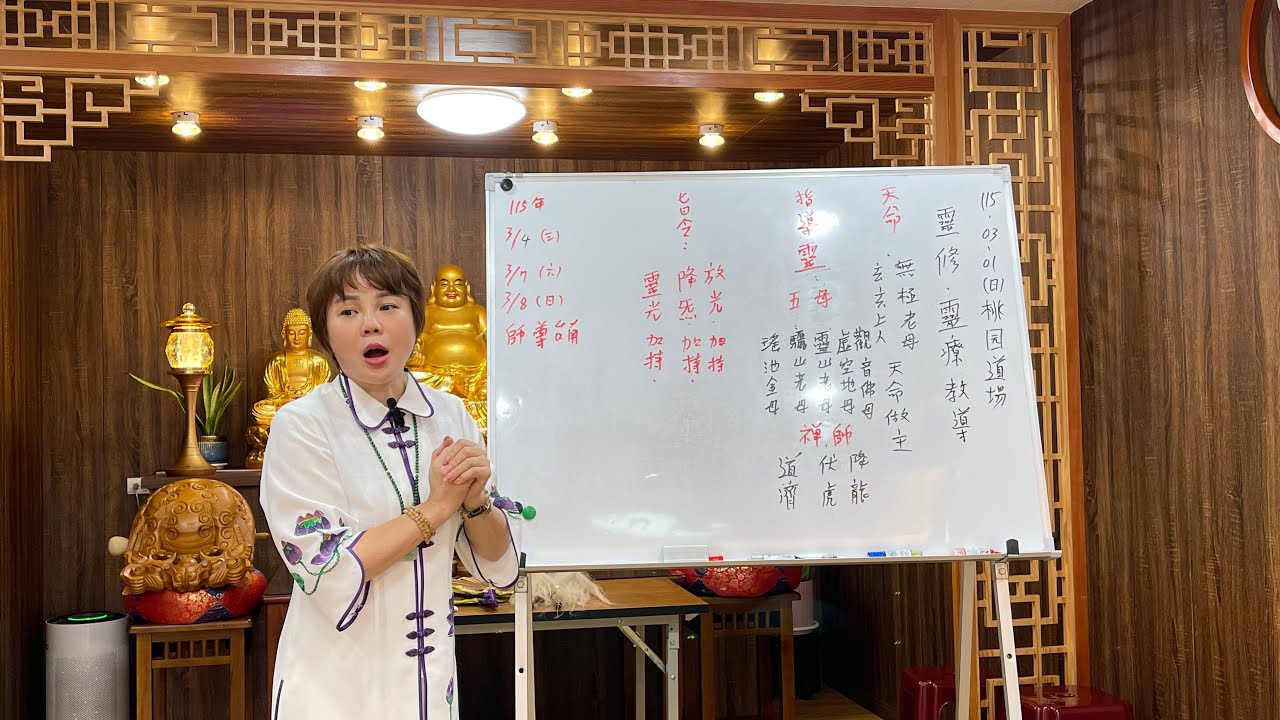 115.03.01(日)桃园道場
靈修.靈療教導
天命
.無極老母
.玄玄上人
天命做主
指導靈:
五母
觀音佛母
虛空地母
靈山老母
驪山老母
瑤池金母
禅師
降龍
伏虎
道濟
旨令:
放光.加持
降炁.加持
靈光加持.
115年
3/4 (三)
3/7 (六)
3/8 (日)
師尊